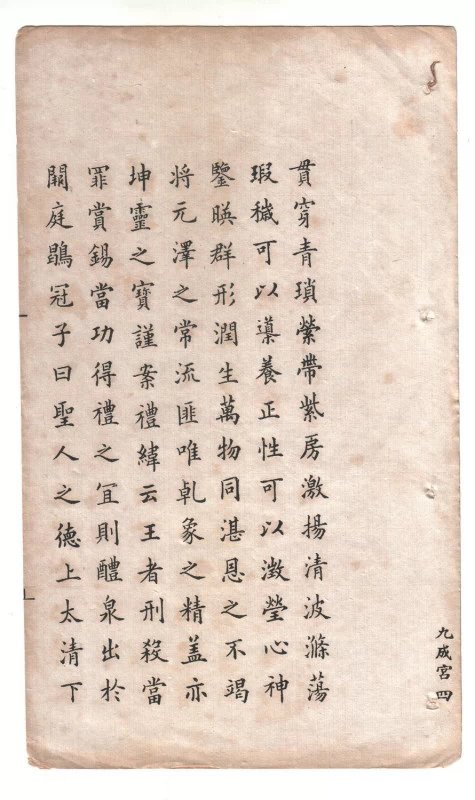 貫穿青瑣縈帶紫房激揚清波滌蕩
瑕穢可以導養正性可以澂瑩心神
鑒暎群形潤生萬物同湛恩之不竭
將元澤之常流匪唯乹象之精盖亦
坤靈之寶謹案禮緯云王者刑殺當
罪賞錫當功得禮之冝則醴泉出於
闕庭鶡冠子曰聖人之德上太清下
九成宮 四